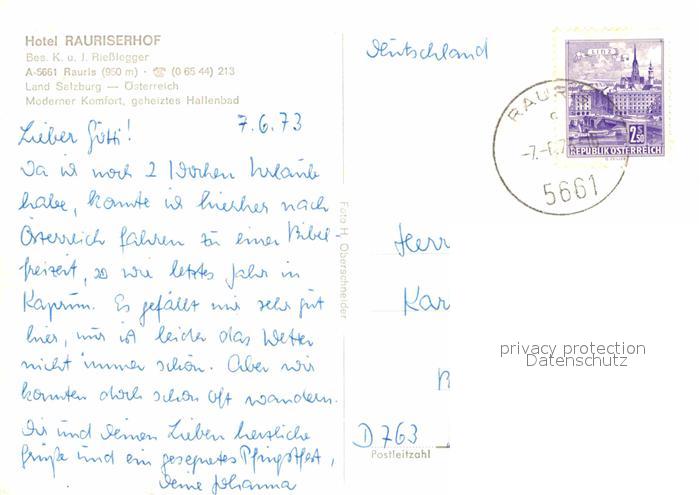 Hotel RAURISERHOF
Bes. K. u. J. Rießlegger
A-5661 Rauris (950 m) · ☎ (0 65 44) 213
Land Salzburg — Österreich
Moderner Komfort, geheiztes Hallenbad
7.6.73
Lieber Götti!
Da ich noch 2 Wochen Urlaub
habe, konnte ich hierher nach
Österreich fahren zu einer Bibel-
freizeit, so wie letztes Jahr in
Kaprun. Es gefällt mir sehr gut
hier, nur ist leider das Wetter
nicht immer schön. Aber wir
konnten doch schon oft wandern.
Dir und Deinen Lieben herzliche
Grüße und ein gesegnetes Pfingstfest,
Deine Johanna
Foto H. Oberschneider
Deutschland
LINZ
2.50
REPUBLIK ÖSTERREICH
RAURIS
5661
Herr
Kar
D 763
Postleitzahl
privacy protection
Datenschutz